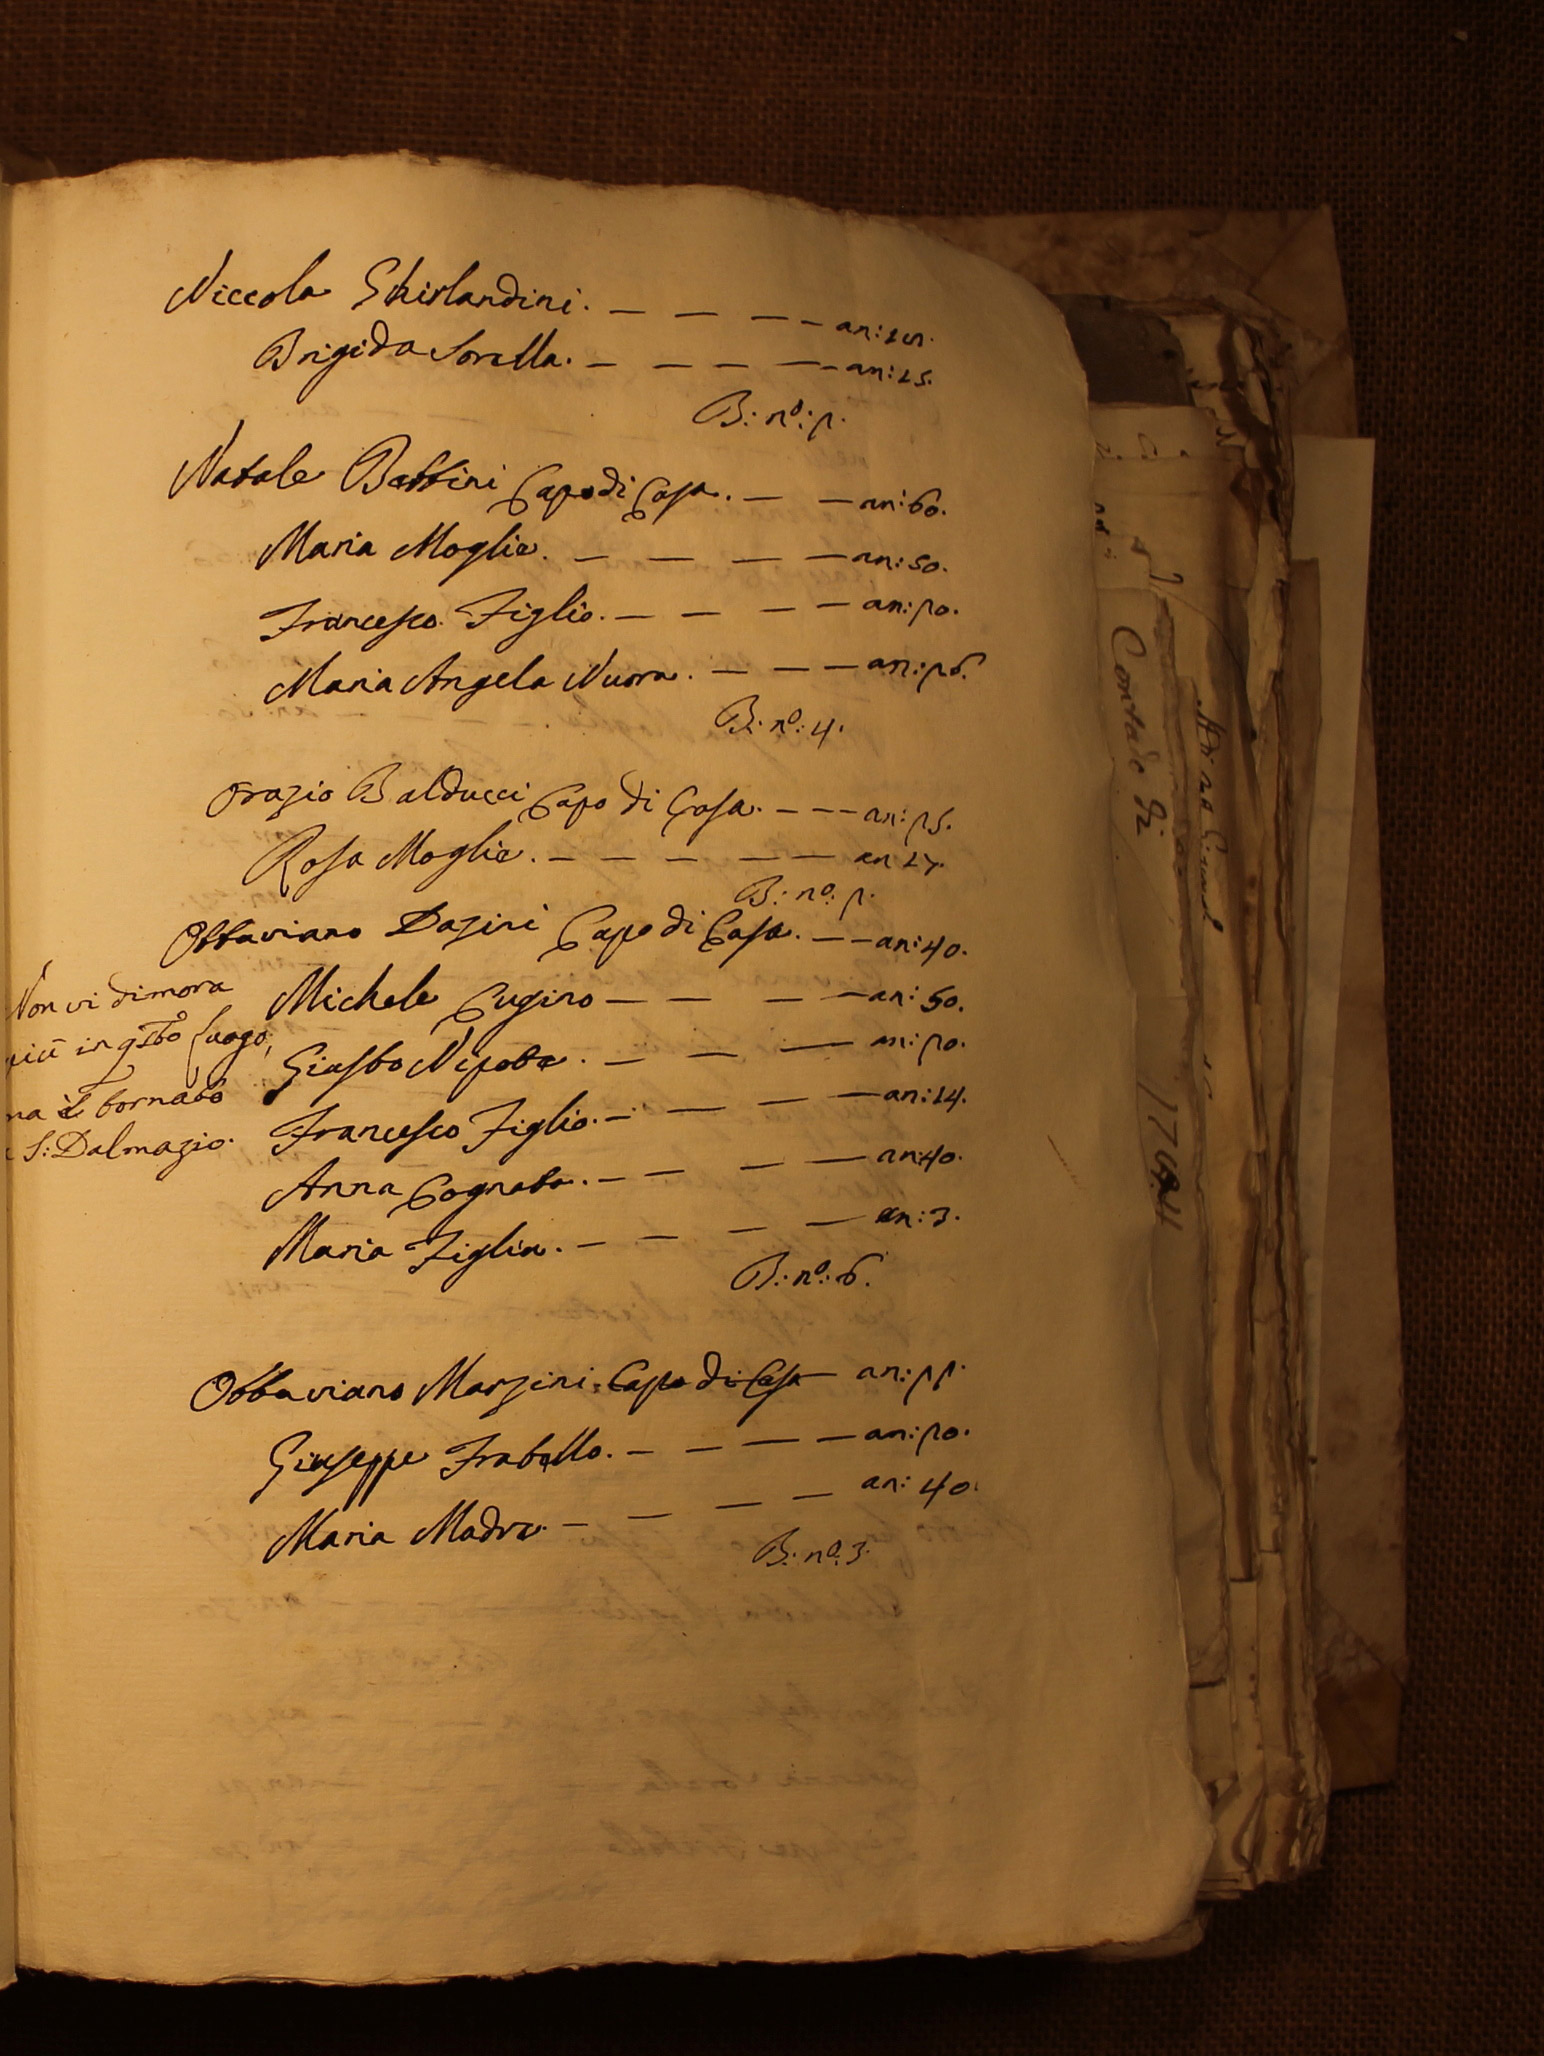 Niccola Ghirlandini. — — — – an:
Brigida Sorella. – — – — – an: 25.
B: nº: 2.
Natale Battini Capo di Casa. — — an: 60.
Maria Moglie. — — — — an: 50.
Francesco Figlio. — — — — an: 20.
Maria Angela Nuora. — — — an: 26.
B: nº: 4.
Orazio Balducci Capo di Casa. — — – an: 25.
Rosa Moglie. – — – — — an 27.
B: nº: 2.
Ottaviano Dazini Capo di Casa. — – an: 40.
Michele Cugino — — — — an: 50.
Giusto Nipote. — — — an: 20.
Francesco Figlio. – — — — an: 14.
Anna Cognata. – — — — an: 40.
Maria Figlia. – — — — an: 3.
B: nº: 6.
Non vi dimora
più in qsto luogo,
ma è tornato
S: Dalmazio.
Ottaviano Marzini Capo di Casa — an: 22.
Giuseppe Fratello. – — — — an: 20.
Maria Madre. – — — — an: 40.
B: nº: 3.
Contado di